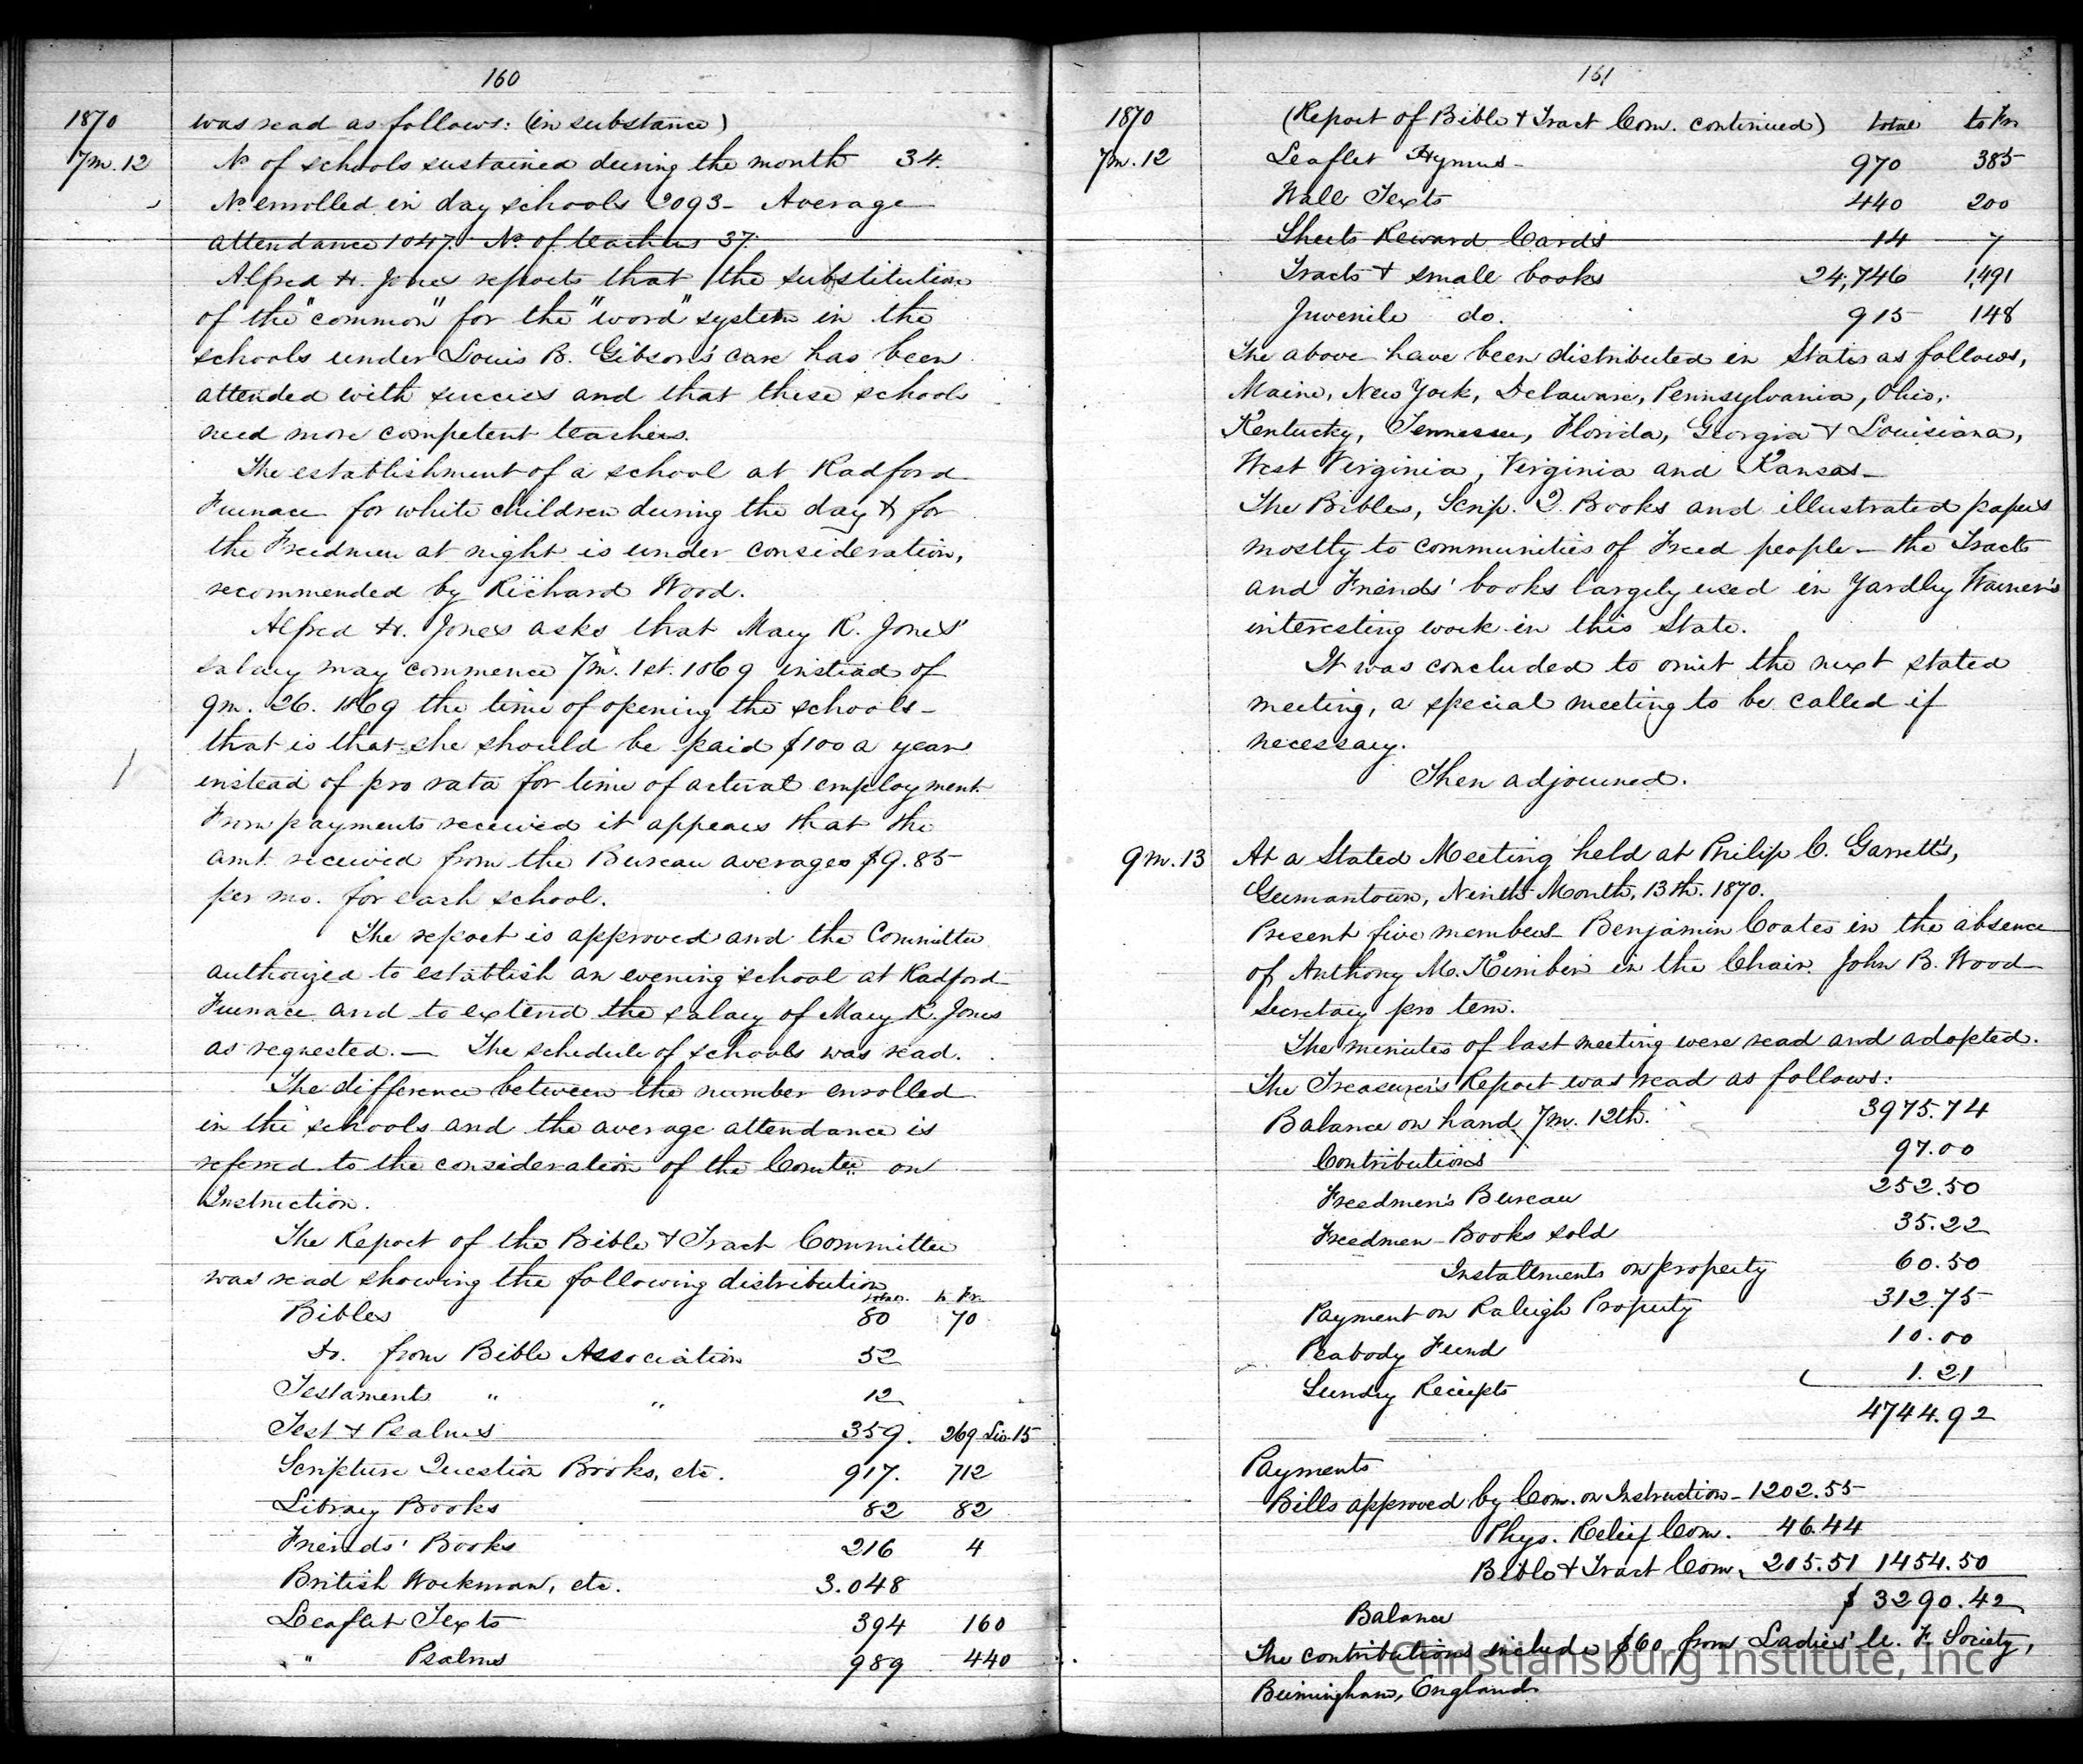 160
1870 was read as follows: (in substance)
7m. 12 No of schools sustained during the month 34.
No enrolled in day schools 2093 - Average
attendance 1047. No. of teachers 37.
Alfred H. Jones reports that the substitution
of the "common" for the "word" system in the
schools under Louis B. Gibson's care has been
attended with success and that these schools
need more competent teachers.
The establishment of a school at Radford
Furnace for white children during the day & for
the Freedmen at night is under consideration,
recommended by Richard Wood.
Alfred H. Jones asks that Mary R. Jones'
salary may commence 7m. 1st. 1869 instead of
9m. 26. 1869 the time of opening the schools -
that is that she should be paid $100 a year
instead of pro rata for time of actual employment.
From payments received it appears that the
amt. received from the Bureau averages $9.85
per mo. for each school.
The report is approved and the Committee
authorized to establish an evening school at Radford
Furnace and to extend the salary of Mary R. Jones
as requested. — The schedule of schools was read.
The difference between the number enrolled
in the schools and the average attendance is
referred to the consideration of the Comtee on
Instruction.
The Report of the Bible & Tract Committee
was read showing the following distribution
total. to Fr.
Bibles 80 70
Do. from Bible Association 52
Testaments " " 12
Test & Psalms 359. 269 Lio. 15
Scripture Question Books, etc. 917. 712
Library Books 82 82
Friends' Books 216 4
British Workman, etc. 3.048
Leaflet Texts 394 160
" Psalms 989 440
161
1870 (Report of Bible & Tract Com. continued) total to Fr.
7m. 12 Leaflet Hymns - 970 385
Wall Texts 440 200
Sheets Reward Cards 14 7
Tracts & small books 24,746 1,491
Juvenile do. 915 148
The above have been distributed in States as follows,
Maine, New York, Delaware, Pennsylvania, Ohio,
Kentucky, Tennessee, Florida, Georgia & Louisiana,
West Virginia, Virginia and Kansas -
The Bibles, Scrip. Q. Books and illustrated papers
mostly to communities of Freed people - the Tracts
and Friends' books largely used in Yardley Warner's
interesting work in this State.
It was concluded to omit the next stated
meeting, a special meeting to be called if
necessary.
Then adjourned.
9m. 13 At a Stated Meeting held at Philip C. Garrett's,
Germantown, Ninth Month, 13th. 1870.
Present five members - Benjamin Coates in the absence
of Anthony M. Kimber in the Chair. John B. Wood
Secretary pro tem.
The minutes of last meeting were read and adopted.
The Treasurer's Report was read as follows:
Balance on hand 7m. 12th. 3975.74
Contributions 97.00
Freedmen's Bureau 252.50
Freedmen - Books sold 35.22
Installments on property 60.50
Payment on Raleigh Property 312.75
Peabody Fund 10.00
Sundry Receipts 1.21
4744.92
Payments
Bills approved by Com. on Instruction - 1202.55
Phys. Relief Com. 46.44
Bible & Tract Com. 205.51 1454.50
Balance $ 3290.42
The contributions include $60 from Ladies' N. F. Society,
Birmingham, England.
Christiansburg Institute, Inc